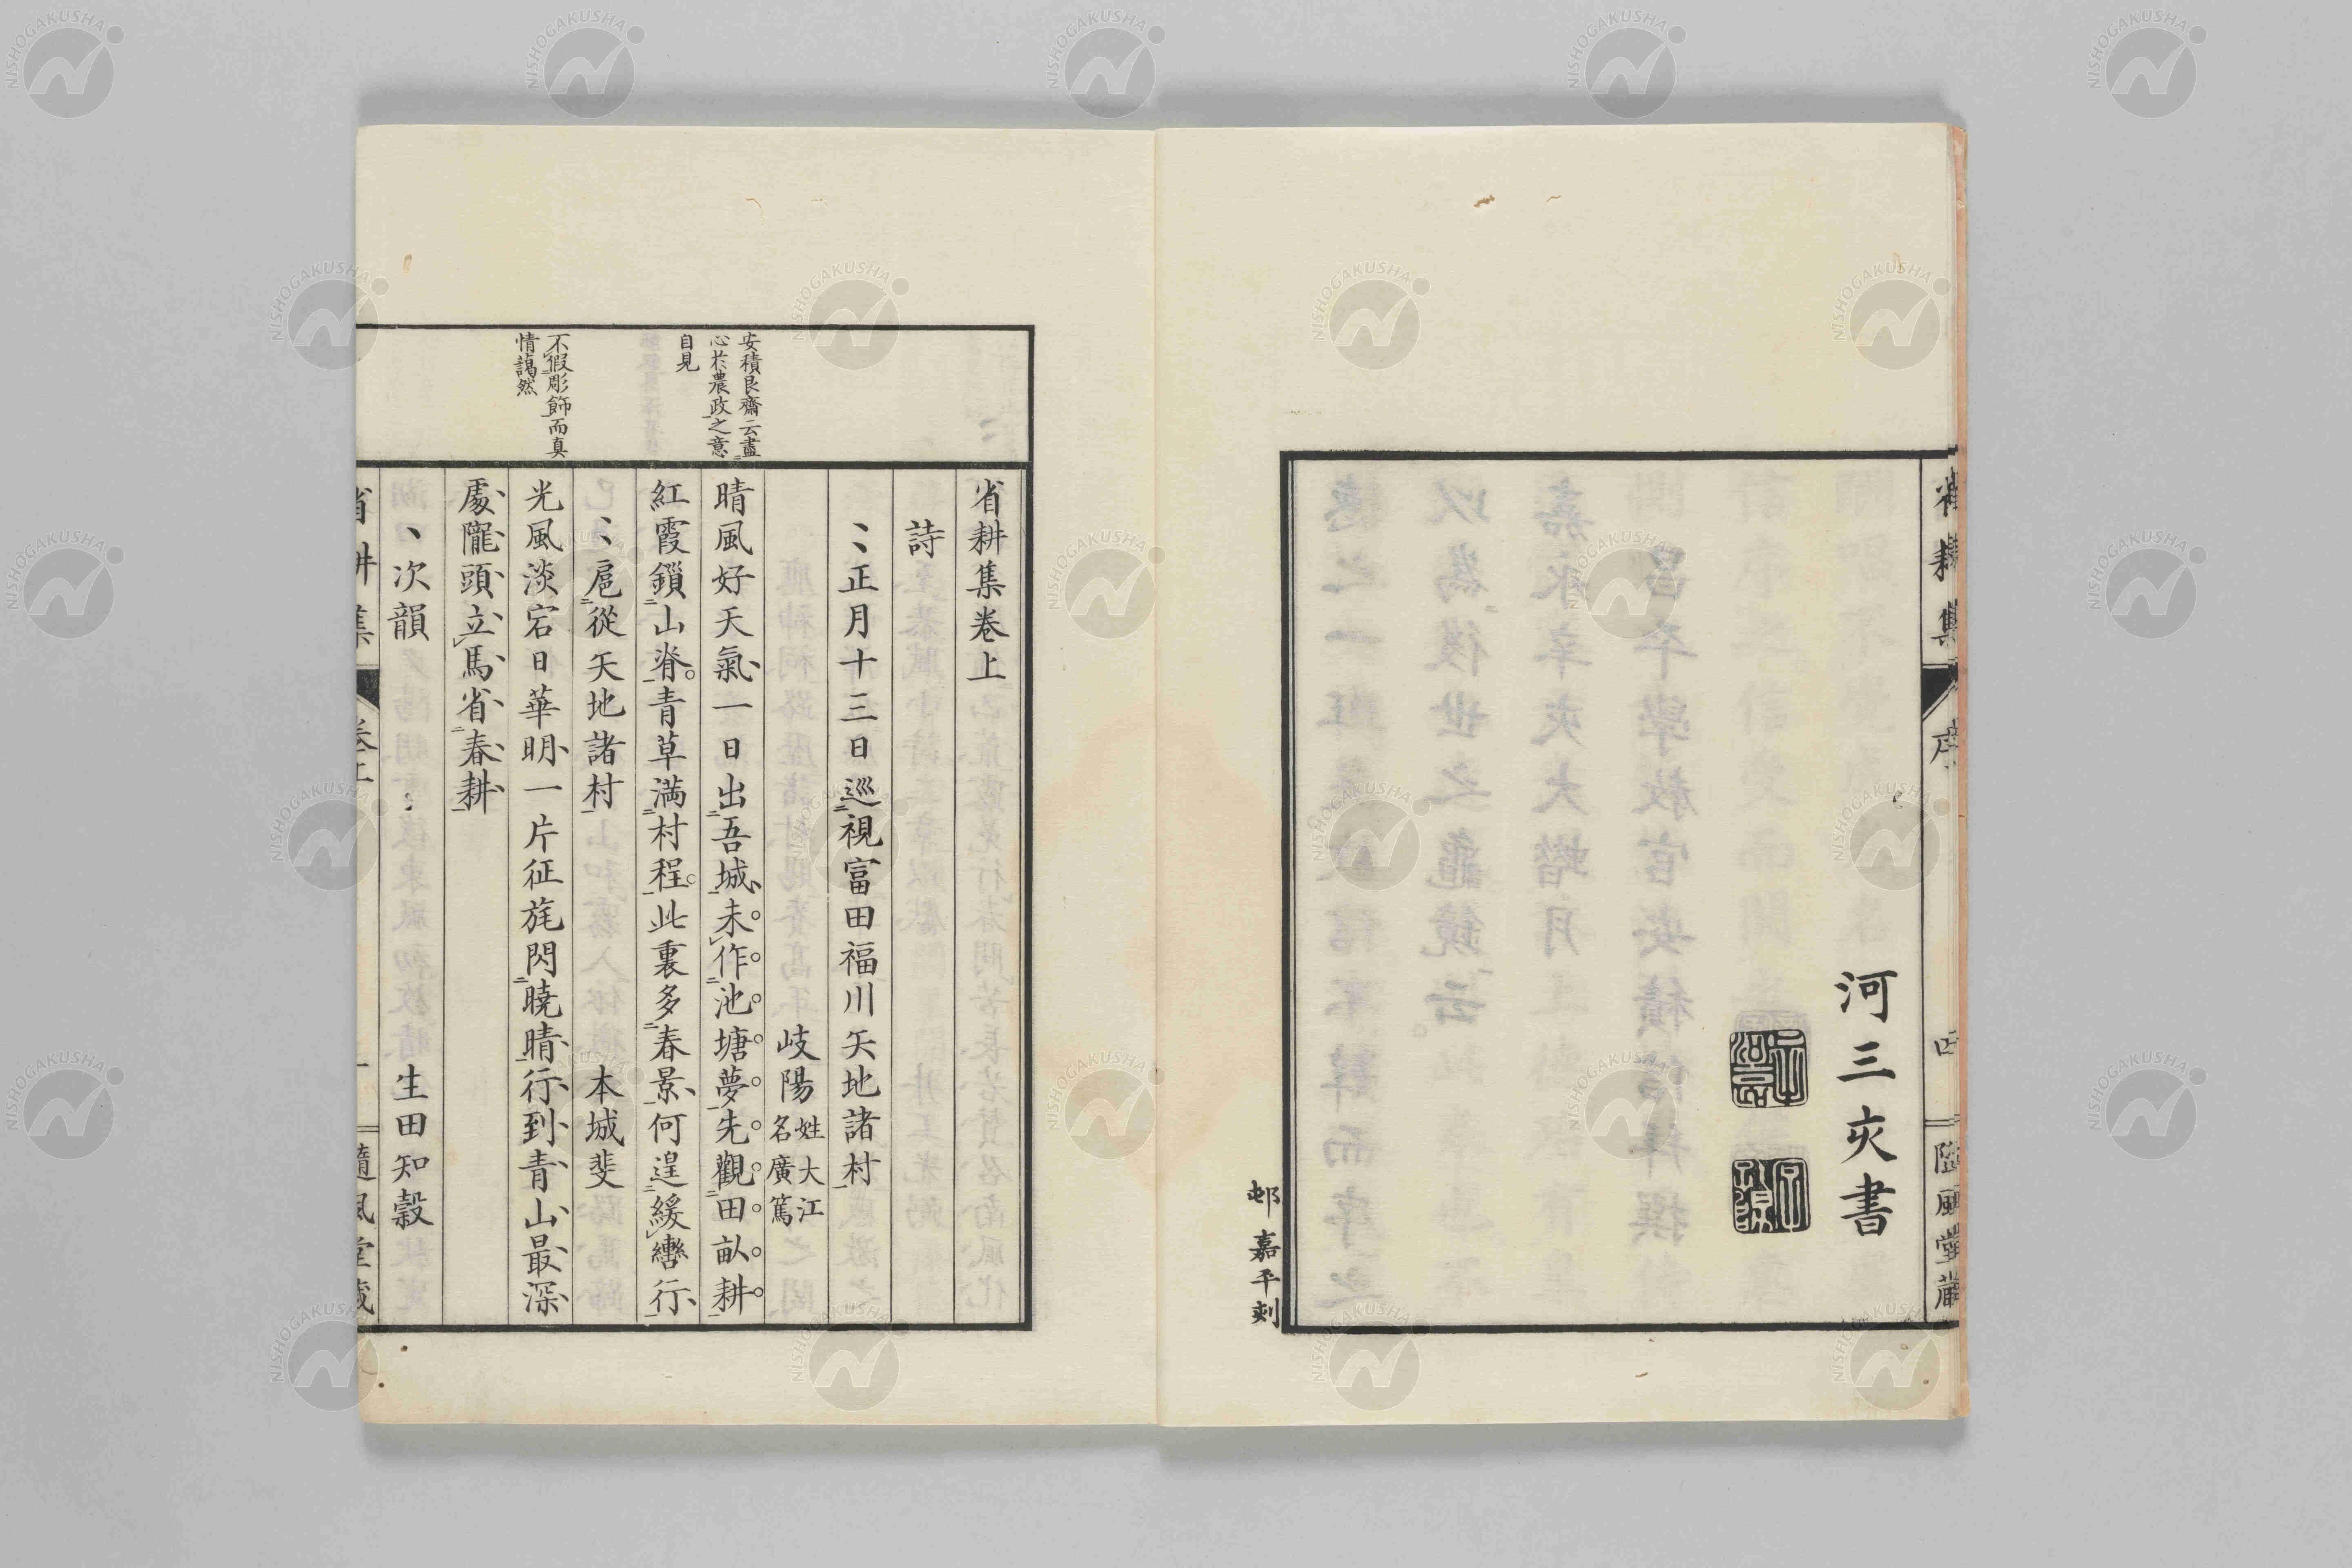 省耕集
序
四
隨風堂藏
河三亥書
邨嘉平刻
省耕集卷上
詩
〻正月十三日巡視富田福川矢地諸村
岐陽 姓大江
名廣篤
安積艮齋云盡
心於農政之意
自見
晴風好天氣一日出吾城未作池塘夢先觀田畝耕
紅霞鎖山脊青草満村程此裏多春景何遑緩轡行
〻扈從矢地諸村 本城斐
不假彫飾而真
情藹然
光風淡宕日華明一片征旄閃曉晴行到青山最深
處隴頭立馬省春耕
〻次韻 生田知穀
省耕集
卷上
一
隨風堂藏
NISHOGAKUSHA